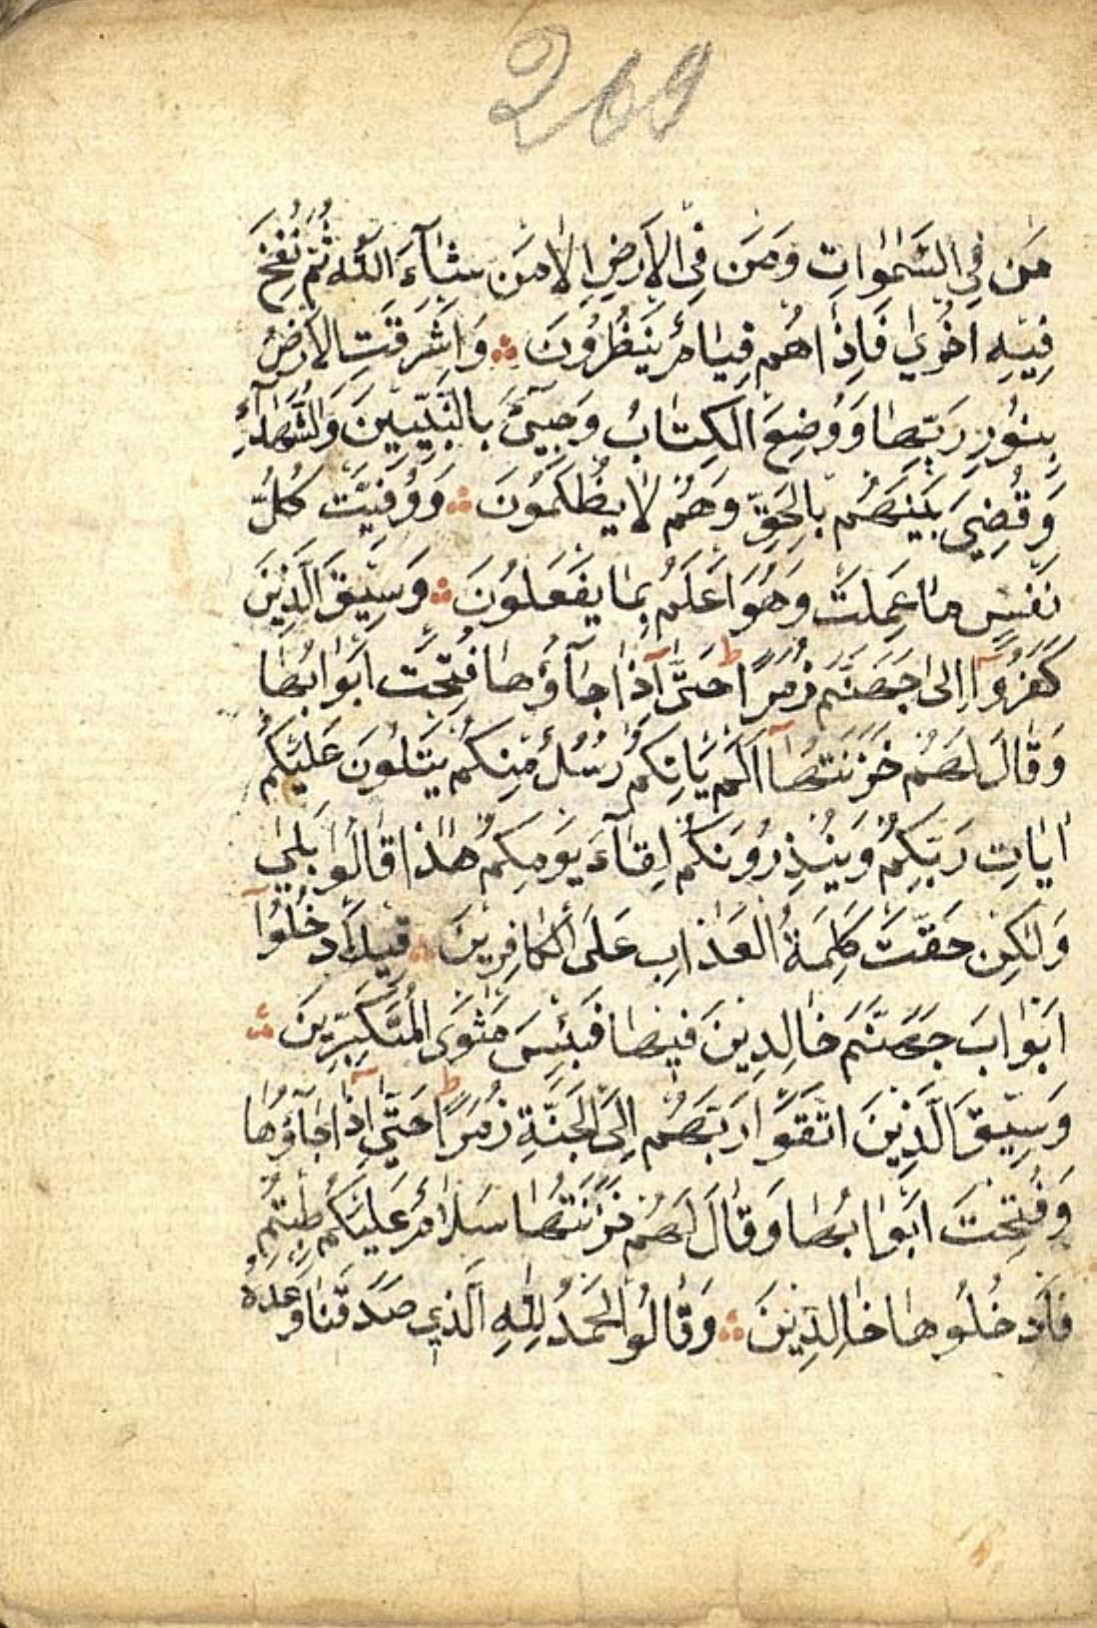 269
مَن فِي السَّمٰوَاتِ وَمَن فِي الْاَرْضِ اِلَّا مَن شَآءَ اللّٰهُ ثُمَّ نُفِخَ
فِيهِ اُخْرٰي فَاِذَا هُم قِيَامٌ يَنْظُرُونَ ؞ وَاَشْرَقَتِ الْاَرْضُ
بِنُورِ رَبِّهَا وَوُضِعَ الْكِتَابُ وَجِيءَ بِالنَّبِيِّينَ وَالشُّهَدَآءِ
وَقُضِيَ بَيْنَهُم بِالْحَقِّ وَهُمْ لَا يُظْلَمُونَ ؞ وَوُفِّيَتْ كُلُّ
نَفْسٍ مَا عَمِلَتْ وَهُوَ اَعْلَمُ بِمَا يَفْعَلُونَ ؞ وَسِيقَ الَّذِينَ
كَفَرُوٓا اِلٰى جَهَنَّمَ زُمَرًا ط حَتّٰىٓ اِذَا جَآؤُهَا فُتِحَتْ اَبْوَابُهَا
وَقَالَ لَهُمْ خَزَنَتُهَآ اَلَمْ يَاْتِكُمْ رُسُلٌ مِنْكُمْ يَتْلُونَ عَلَيْكُمْ
اٰيَاتِ رَبِّكُمْ وَيُنْذِرُونَكُمْ لِقَآءَ يَوْمِكُمْ هٰذَا قَالُوا بَلٰي
وَلٰكِنْ حَقَّتْ كَلِمَةُ الْعَذَابِ عَلَى الْكَافِرِينَ ؞ قِيلَ ادْخُلُوٓا
اَبْوَابَ جَهَنَّمَ خَالِدِينَ فِيهَا فَبِئْسَ مَثْوَى الْمُتَكَبِّرِينَ ؞
وَسِيقَ الَّذِينَ اتَّقَوْا رَبَّهُم اِلَى الْجَنَّةِ زُمَرًا ط حَتّٰيٓ اِذَا جَآؤُهَا
وَفُتِحَتْ اَبْوَابُهَا وَقَالَ لَهُمْ خَزَنَتُهَا سَلَامٌ عَلَيْكُمْ طِبْتُمْ
فَادْخُلُوهَا خَالِدِينَ ؞ وَقَالُوا الْحَمْدُ لِلّٰهِ الَّذِي صَدَقَنَا وَعْدَهُ